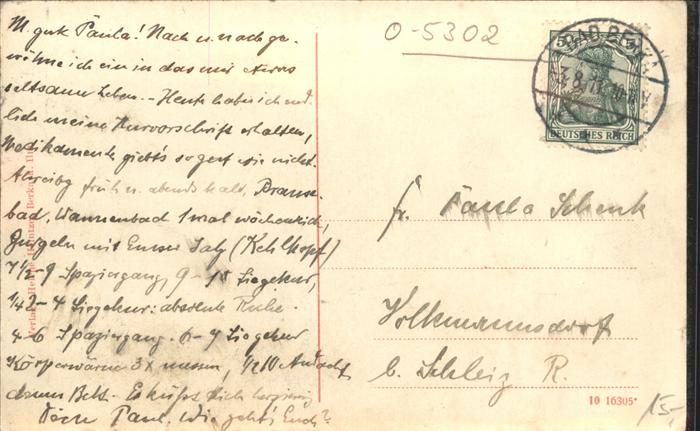 M. gute Paula! Nach u. nach ge-
wöhne ich ein in das mir etwas
seltsame Leben. - Heute habe ich end-
lich meine Kurvorschrift erhalten,
Medikamente giebt's so gut wie nicht.
Abreibg früh u. abends kalt, Brause-
bad, Wannenbad 1 mal wöchentlich,
Gurgeln mit Emser Salz (Kehlkopf)
7 1/2-9 Spaziergang, 9-10 Liegekur,
1/2 2-4 Liegekur: absolute Ruhe.
4-6 Spaziergang. 6-7 Liegekur
Körperwärme 3x messen, 1/2 10 Andacht
dann Bett. Es küßt Dich herzinnig
Dein Paul. Wie geht's Euch?
0-5302
BAD BERKA
3.8.11. 10-11 V
DEUTSCHES REICH
fr. Paula Schenk
Volkmannsdorf
b. Schleiz R.
10 16305*
15,-